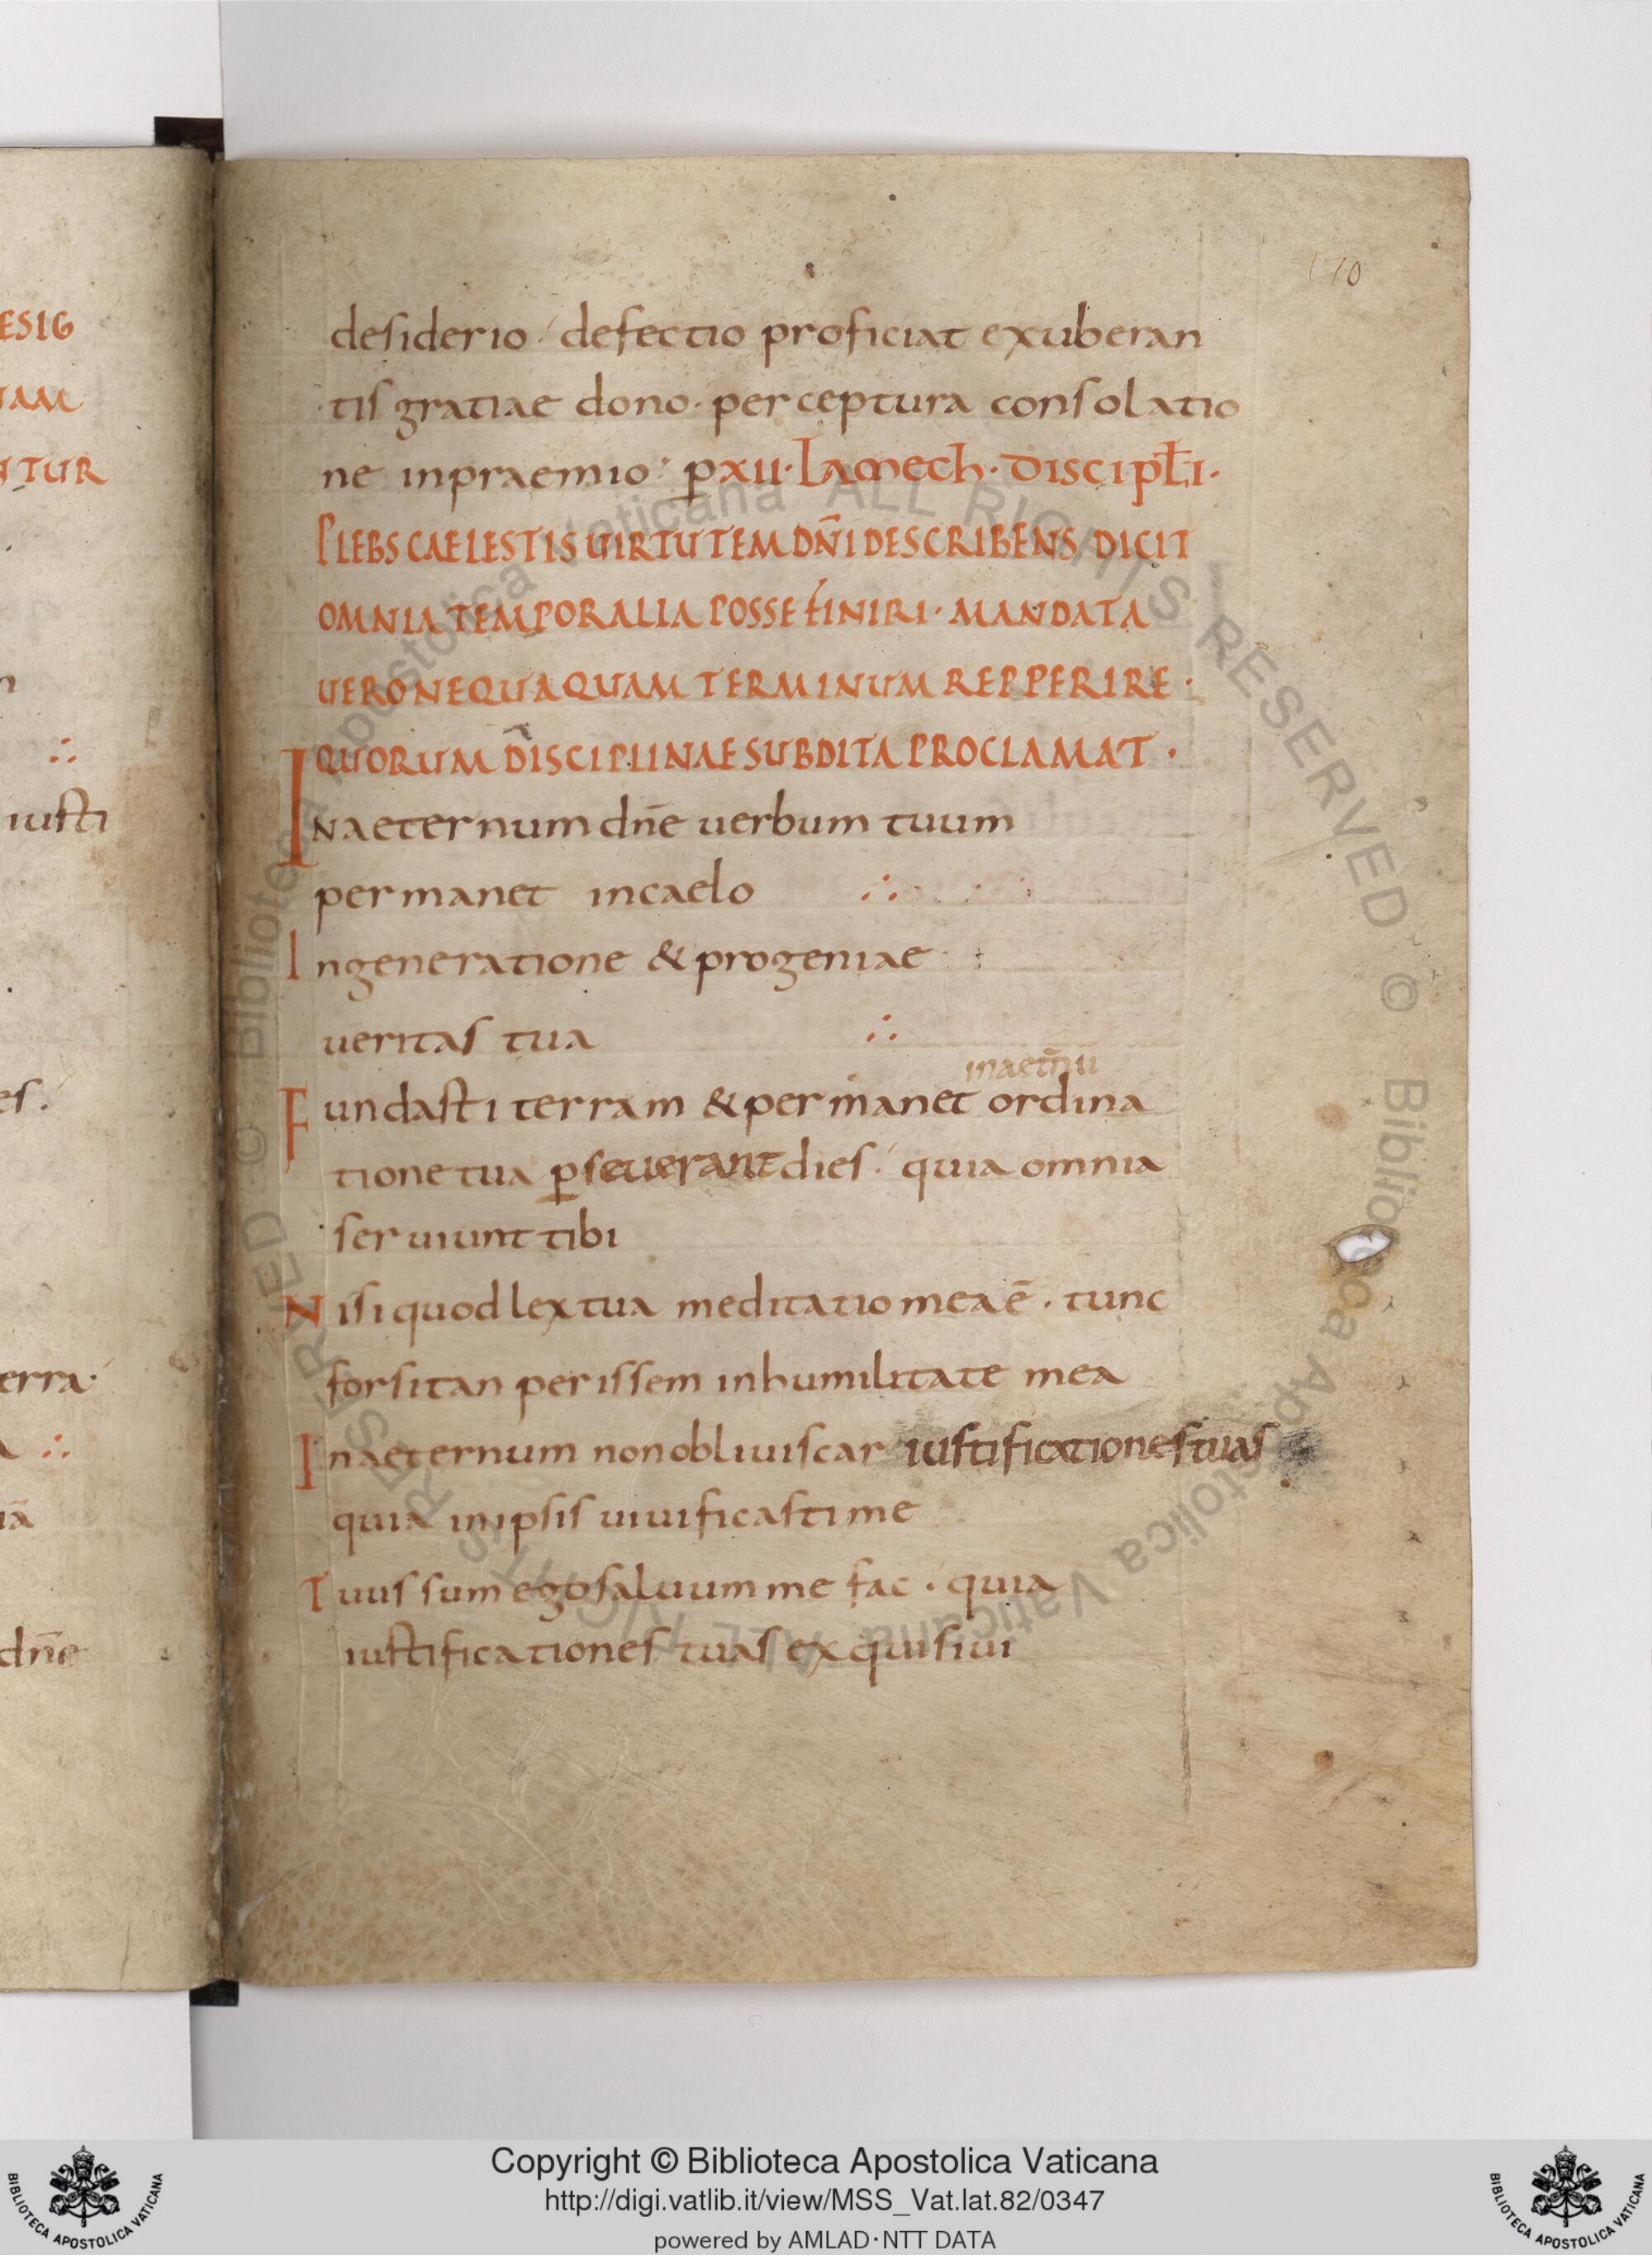 ESIG
TAM
NTUR
iusti
es.
erra.
iā
dn̄e
170
desiderio. defectio proficiat exuberan
tis gratiae dono. perceptura consolatio
ne inpraemio. ꝑ XII. Lamech. discipł̄i.
PLEBS CAELESTIS UIRTUTEM DN̄I DESCRIBENS DICIT
OMNIA TEMPORALIA POSSE FINIRI. MANDATA
UERO NEQUAQUAM TERMINUM REPPERIRE.
QUORUM DISCIPLINAE SUBDITA PROCLAMAT.
INaeternum dn̄e uerbum tuum
permanet incaelo ∴
Ingeneratione & progeniae
ueritas tua ∴
inaet̄nū
Fundasti terram & permanet ordina
tione tua ꝑseuerant dies. quia omnia
seruiunt tibi
Nisi quod lex tua meditatio mea ē. tunc
forsitan perissem inhumilitate mea
Inaeternum non obliuiscar iustificationes tuas
quia inipsis uiuificasti me
Tuus sum ego saluum me fac. quia
iustificationes tuas exquisiui
Copyright © Biblioteca Apostolica Vaticana
http://digi.vatlib.it/view/MSS_Vat.lat.82/0347
powered by AMLAD·NTT DATA
BIBLIOTECA APOSTOLICA VATICANA
BIBLIOTECA APOSTOLICA VATICANA
© Biblioteca Apostolica Vaticana ALL RIGHTS RESERVED © Biblioteca Apostolica Vaticana ALL RIGHTS RESERVED